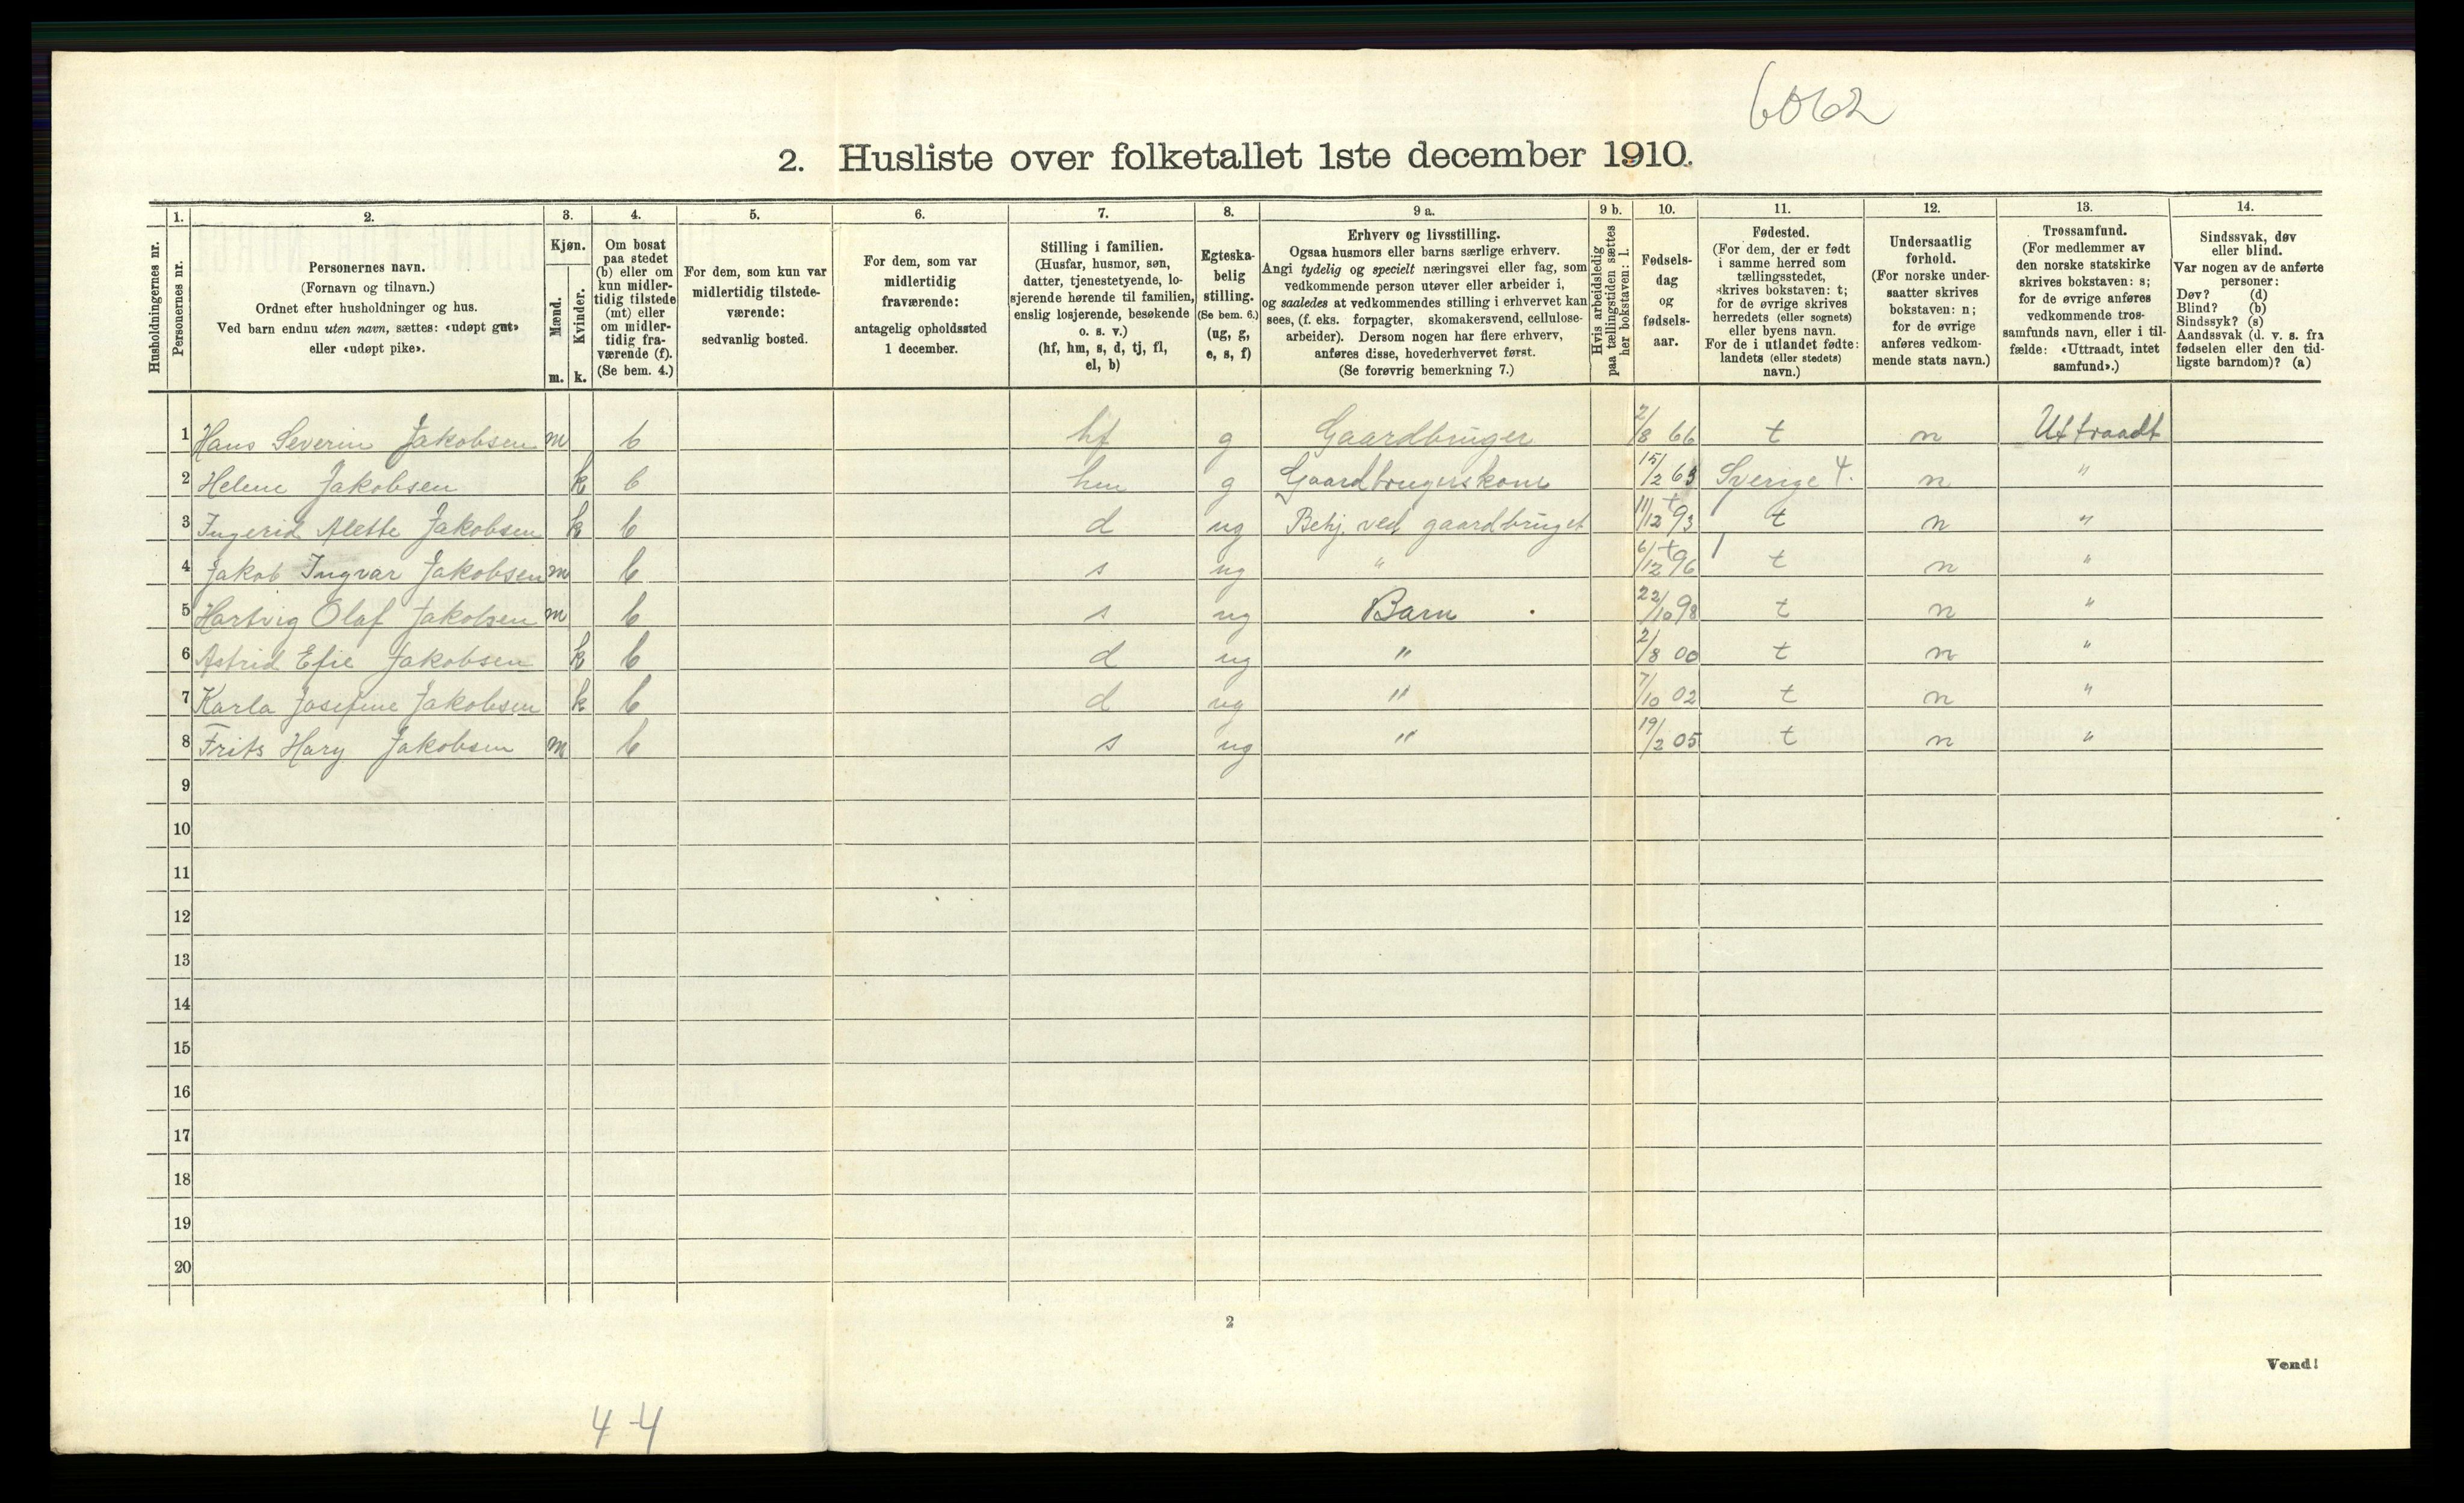 6062
2. Husliste over folketallet 1ste december 1910.
Husholdningernes nr.
1.
Personernes nr.
2.
Personernes navn.
(Fornavn og tilnavn.)
Ordnet efter husholdninger og hus.
Ved barn endnu uten navn, sættes: «udøpt gut»
eller «udøpt pike».
3.
Kjøn.
Mænd.
Kvinder.
m. k.
4.
Om bosat
paa stedet
(b) eller om
kun midler-
tidig tilstede
(mt) eller
om midler-
tidig fra-
værende (f).
(Se bem. 4.)
5.
For dem, som kun var
midlertidig tilstede-
værende:
sedvanlig bosted.
6.
For dem, som var
midlertidig
fraværende:
antagelig opholdssted
1 december.
7.
Stilling i familien.
(Husfar, husmor, søn,
datter, tjenestetyende, lo-
sjerende hørende til familien,
enslig losjerende, besøkende
o. s. v.)
(hf, hm, s, d, tj, fl,
el, b)
8.
Egteska-
belig
stilling.
(Se bem. 6.)
(ug, g,
e, s, f)
9 a.
Erhverv og livsstilling.
Ogsaa husmors eller barns særlige erhverv.
Angi tydelig og specielt næringsvei eller fag, som
vedkommende person utøver eller arbeider i,
og saaledes at vedkommendes stilling i erhvervet kan
sees, (f. eks. forpagter, skomakersvend, cellulose-
arbeider). Dersom nogen har flere erhverv,
anføres disse, hovederhvervet først.
(Se forøvrig bemerkning 7.)
9 b.
Hvis arbeidsledig
paa tællingstiden sættes
her bokstaven: l.
10.
Fødsels-
dag
og
fødsels-
aar.
11.
Fødested.
(For dem, der er født
i samme herred som
tællingsstedet,
skrives bokstaven: t;
for de øvrige skrives
herredets (eller sognets)
eller byens navn.
For de i utlandet fødte:
landets (eller stedets)
navn.)
12.
Undersaatlig
forhold.
(For norske under-
saatter skrives
bokstaven: n;
for de øvrige
anføres vedkom-
mende stats navn.)
13.
Trossamfund.
(For medlemmer av
den norske statskirke
skrives bokstaven: s;
for de øvrige anføres
vedkommende tros-
samfunds navn, eller i til-
fælde: «Uttraadt, intet
samfund».)
14.
Sindssvak, døv
eller blind.
Var nogen av de anførte
personer:
Døv? (d)
Blind? (b)
Sindssyk? (s)
Aandssvak (d. v. s. fra
fødselen eller den tid-
ligste barndom)? (a)
1 Hans Severin Jakobsen m b hf g Gaardbruger 2/8 66 t n Uttraadt
2 Helene Jakobsen k b hm g Gaardbrugerskone 15/2 63 Sverige 4. n "
3 Ingerid Alette Jakobsen k b d ug Behj. ved gaardbruget 11/12 93 t n "
4 Jakob Ingvar Jakobsen m b s ug " 6/12 96 t n "
5 Hartvig Olaf Jakobsen m b s ug Barn 22/10 98 t n "
6 Astrid Efie Jakobsen k b d ug " 2/8 00 t n "
7 Karla Josefine Jakobsen k b d ug " 7/10 02 t n "
8 Frits Hary Jakobsen m b s ug " 19/2 05 t n "
9
10
11
12
13
14
15
16
17
18
19
20
2
Vend!
4-4